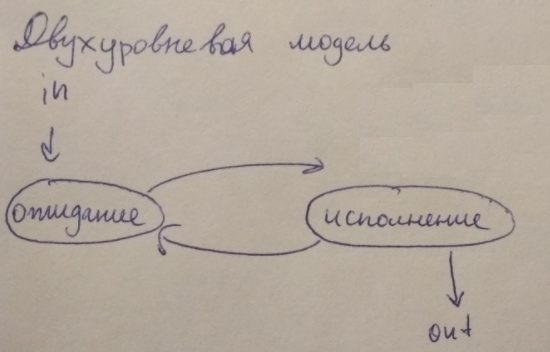 Двухуровневая модель
in
ожидание
исполнение
out